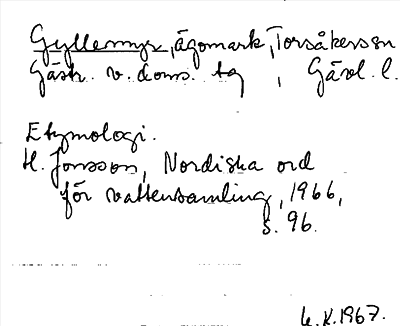 Gyllermyr, ägomark, Torsåkers sn
Gästr. v. doms. tg, Gävl. l.
Etymologi.
H. Jonsson, Nordiska ord
för vattensamling, 1966,
s. 96.
4.X.1967.